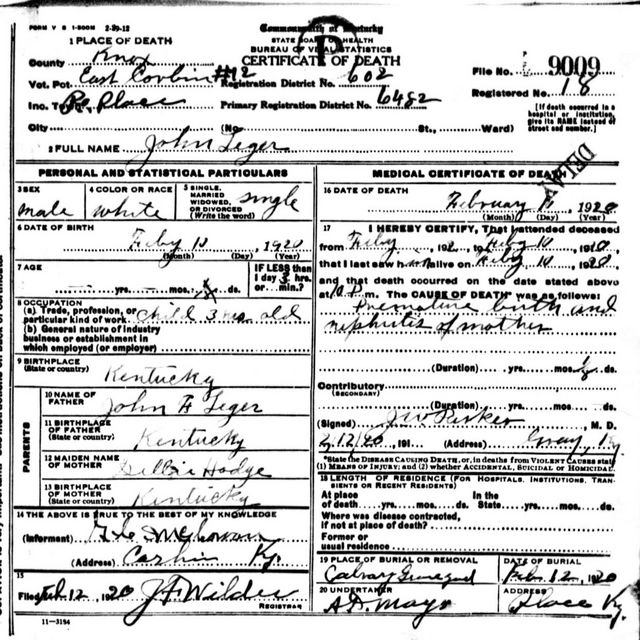 FORM V S 1-500M 2-29-12
Commonwealth of Kentucky
STATE BOARD OF HEALTH
BUREAU OF VITAL STATISTICS
CERTIFICATE OF DEATH
1 PLACE OF DEATH
County Knox
Vot. Pct. East Corbin #12 Registration District No. 602
File No. 9009
Inc. Place Primary Registration District No. 6482
Registered No. 18
City (No. St., Ward)
[If death occurred in a hospital or institution, give its NAME instead of street and number.]
2 FULL NAME John Leger
DELAY
PERSONAL AND STATISTICAL PARTICULARS
3 SEX male
4 COLOR OR RACE white
5 SINGLE, MARRIED WIDOWED, OR DIVORCED (Write the word) single
6 DATE OF BIRTH
Feby 10, 1920
(Month) (Day) (Year)
7 AGE
yrs. mos. ds.
IF LESS than 1 day 3 hrs. or min.?
8 OCCUPATION
(a) Trade, profession, or particular kind of work child 3 hrs. old
(b) General nature of industry
business or establishment in
which employed (or employer)
9 BIRTHPLACE
(State or country) Kentucky
PARENTS
10 NAME OF FATHER John F Leger
11 BIRTHPLACE OF FATHER (State or country) Kentucky
12 MAIDEN NAME OF MOTHER Hodge
13 BIRTHPLACE OF MOTHER (State or country) Kentucky
14 THE ABOVE IS TRUE TO THE BEST OF MY KNOWLEDGE
(Informent)
(Address) Corbin Ky.
15
Filed Feb 12, 1920 J F Wilder
REGISTRAR
11-3184
MEDICAL CERTIFICATE OF DEATH
16 DATE OF DEATH
February 1920
(Month) (Day) (Year)
17 I HEREBY CERTIFY, That I attended deceased
from Feby, 192 to Feby 10, 1910,
that I last saw h alive on Feby 10, 1920,
and that death occurred on the date stated above
at 10 P m. The CAUSE OF DEATH* was as follows:
Premature birth and
nephritis of mother
(Duration) yrs. mos. ds.
Contributory
(SECONDARY)
(Duration) yrs. mos. ds.
(Signed) J W Parker, M. D.
2/12/20, 191 (Address) Gray, Ky.
*State the DISEASE CAUSING DEATH, or, in deaths from VIOLENT CAUSES state
(1) MEANS OF INJURY; and (2) whether ACCIDENTAL, SUICIDAL or HOMICIDAL.
18 LENGTH OF RESIDENCE (FOR HOSPITALS, INSTITUTIONS, TRANSIENTS OR RECENT RESIDENTS)
At place In the
of death yrs. mos. ds. State yrs. mos. ds.
Where was disease contracted,
if not at place of death?
Former or
usual residence
19 PLACE OF BURIAL OR REMOVAL
Calvary Graveyard
DATE OF BURIAL
Feb 12, 1920
20 UNDERTAKER
A D Mays
ADDRESS
Place Ky.